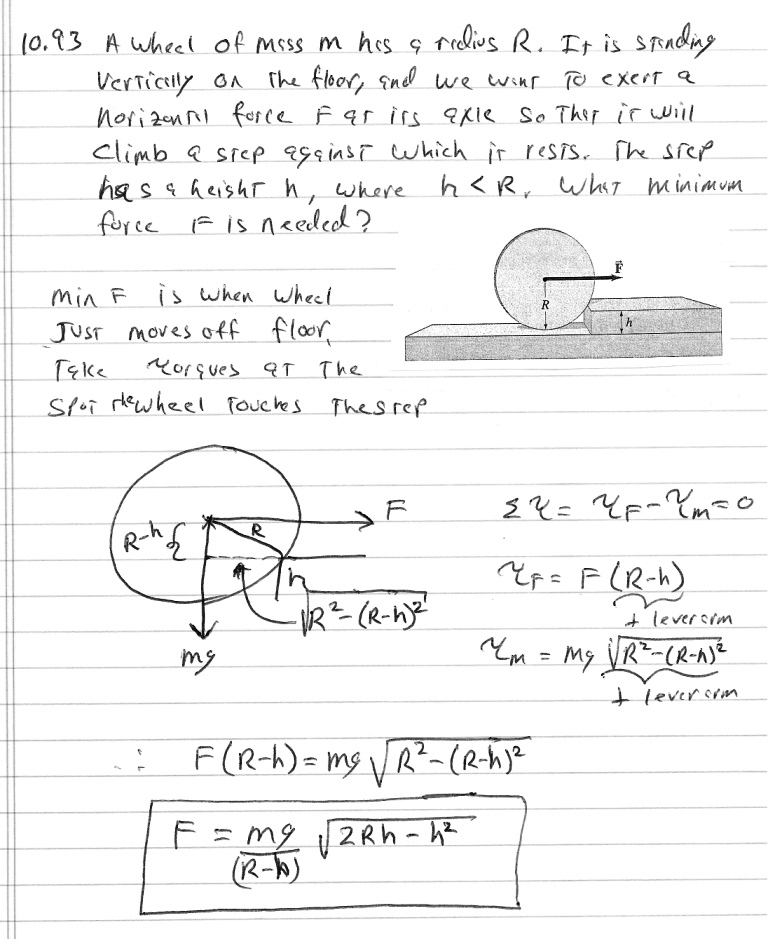 10.93 A wheel of mass M has a radius R. It is standing
vertically on the floor, and we want to exert a
horizontal force F at its axle so that it will
climb a step against which it rests. The step
has a height h, where h < R. What minimum
force F is needed?
F
R
h
Min F is when wheel
Just moves off floor,
Take torques at the
spot the wheel touches the step
F
R-h
R
h
√R²-(R-h)²
mg
Στ = τF - τm = 0
τF = F(R-h)
⊥ lever arm
τm = mg √R²-(R-h)²
⊥ lever arm
∴ F(R-h) = mg √R²-(R-h)²
F = mg/(R-h) √2Rh-h²